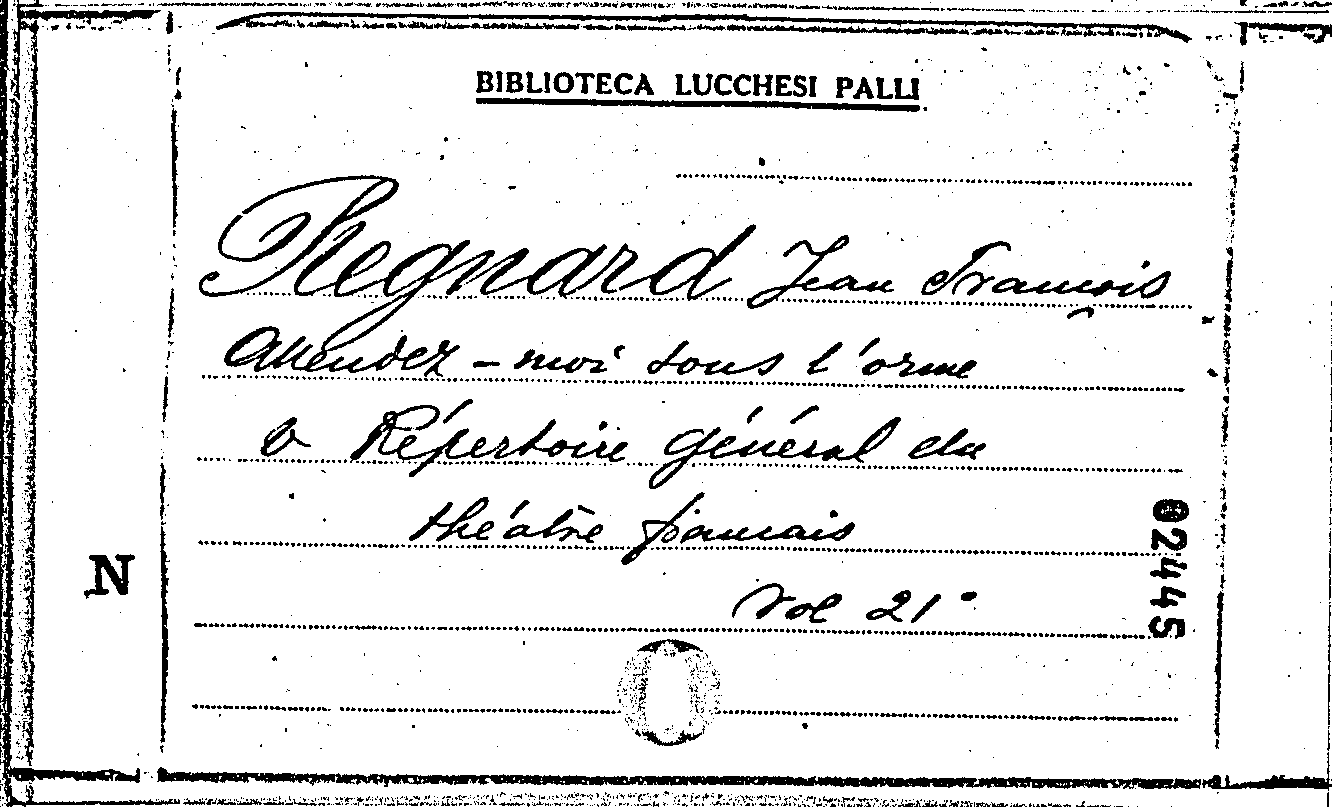 BIBLIOTECA LUCCHESI PALLI
Regnard Jean François
Attendez-moi sous l'orme
v Répertoire général du
théâtre français
Vol 21°
N
02445